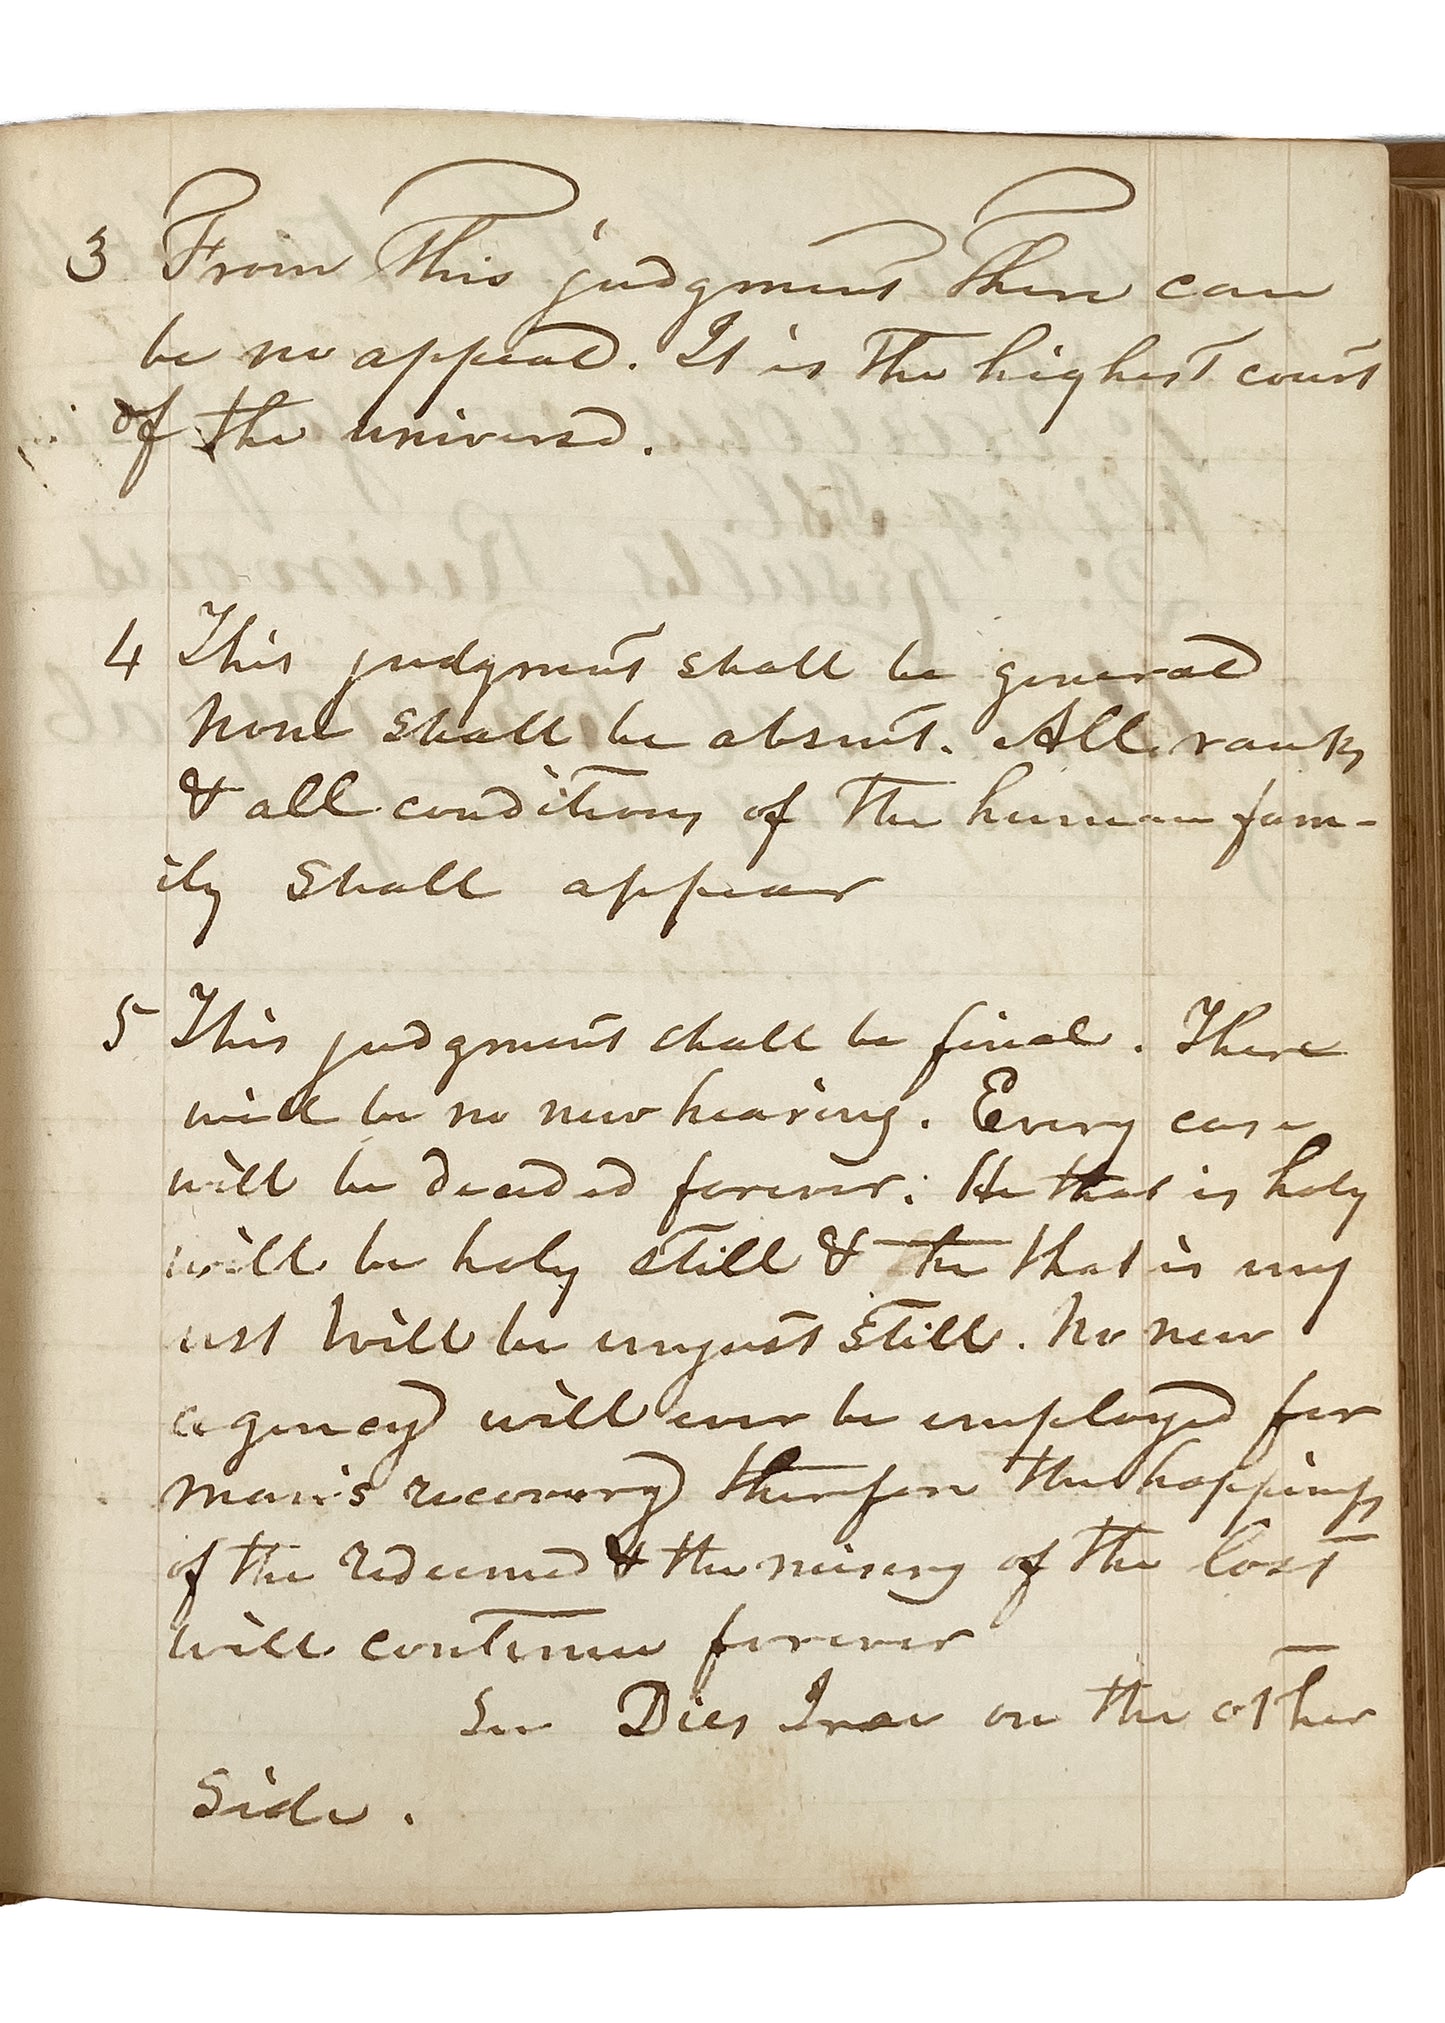 3 From this judgment there can
be no appeal. It is the highest court
of the universe.
4 This judgment shall be general
None shall be absent. All ranks
& all conditions of the human fam-
ily shall appear
5 This judgment shall be final. There
will be no new hearing. Every case
will be decided forever. He that is holy
will be holy still & he that is unj
ust will be unjust still. No new
agency will ever be employed for
man's recovery therefore the happiness
of the redeemed & the misery of the lost
will continue forever
See Dies Irae on the other
side.